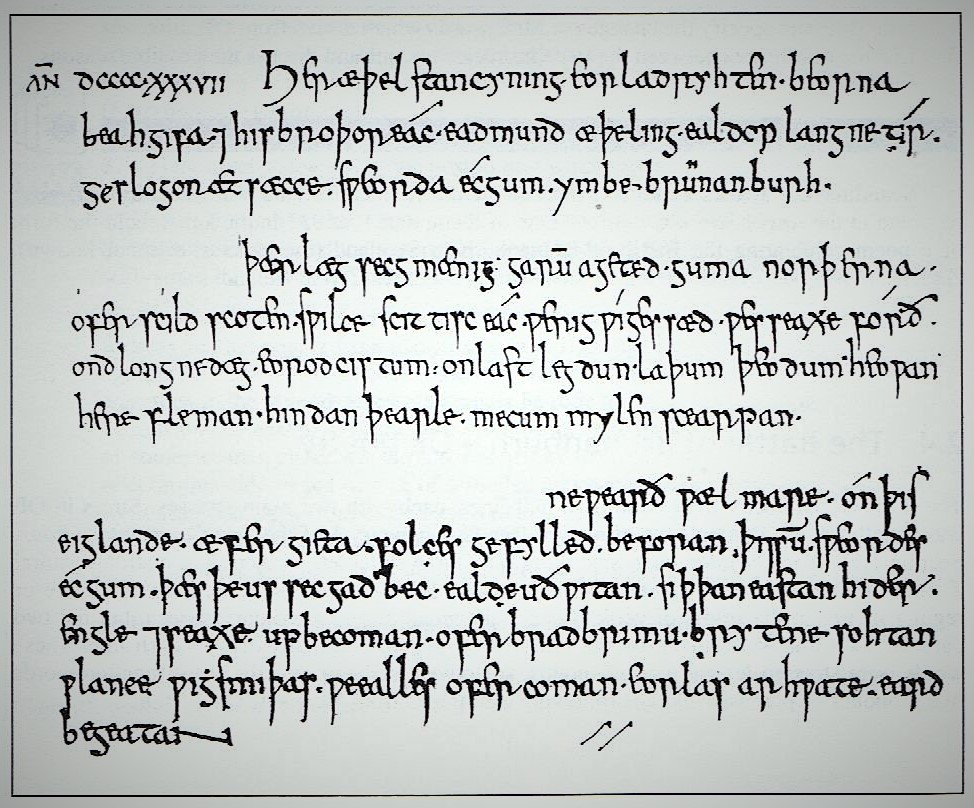 AN̄ DCCCCXXXVII Her æþelstan cyning·eorla dryhten·beorna
beahgifa·⁊ his broþor eác·eadmund æþeling·ealdor langne tír.
geslogon æt sæcce·sƿeorda écgum·ymbe brunanburh.
þær læg secg mænig·garū ageted·guma norþerna·
ofer scild scoten·sƿilce scittisc eác·ƿerig ƿíges sæd·ƿesseaxe fórð.
ondlongne dæg·eorodcistum·on last legdun·laþum þeodum·heoƿan
here fleman·hindan þearle·mecum mylen scearpan.
ne ƿearð ƿæl mare·ón þis
eiglande·æfer gieta·folces gefylled·beforan þissū·sƿeordes
écgum·þæs þe us secgað bec·ealde uðƿitan·siþþan eastan hider·
engle ⁊ seaxe up becoman·ofer brad brimu·brytene sohtan
ƿlance ƿigsmiþas·ƿeealles ofercoman·eorlas arhƿate·eard
begeatan